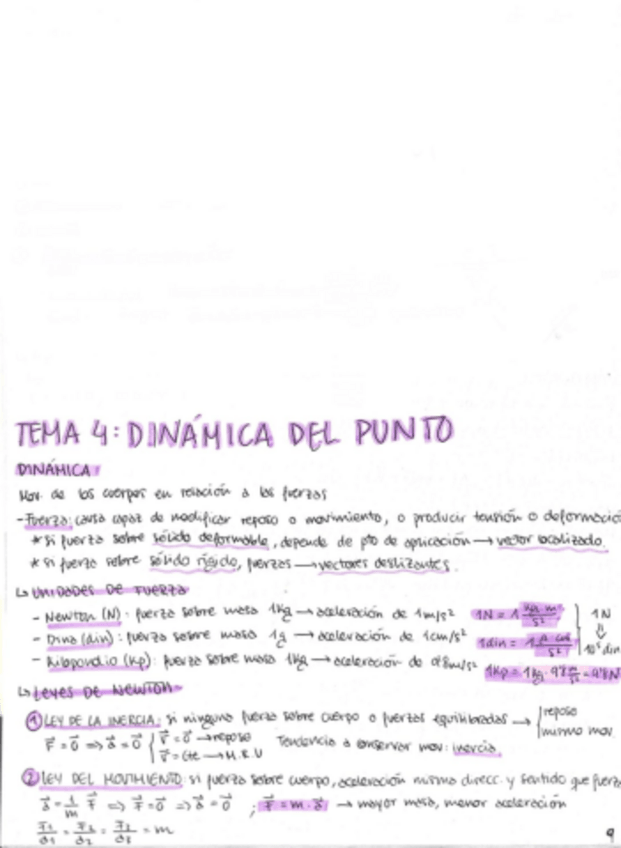 TEMA 4: DINÁMICA DEL PUNTO
DINÁMICA
Mov. de los cuerpos en relación a las fuerzas
-Fuerza: causa capaz de modificar reposo o movimiento, o producir tensión o deformació
* si fuerza sobre sólido deformable, depende de pto de aplicación → vector localizado.
* si fuerza sobre sólido rígido, fuerzas → vectores deslizantes.
↳ UNIDADES DE FUERZA
- Newton (N): fuerza sobre masa 1Kg → aceleración de 1m/s² 1N = 1 Kg·m/s² 1N
- Dina (din): fuerza sobre masa 1g → aceleración de 1cm/s² 1din = 1 g·cm/s² ⇓ 10⁵ din
- Kilopondio (Kp): fuerza sobre masa 1Kg → aceleración de 9'8m/s² 1Kp = 1Kg·9'8 m/s² = 9'8N
↳ LEYES DE NEWTON
① LEY DE LA INERCIA: si ninguna fuerza sobre cuerpo o fuerzas equilibradas → reposo
mismo mov.
F⃗ = 0⃗ ⇒ a⃗ = 0⃗ { v⃗ = 0⃗ → reposo Tendencia a conservar mov: inercia.
v⃗ = cte → M.R.U
② LEY DEL MOVIMIENTO: si fuerza sobre cuerpo, aceleración misma direcc. y sentido que fuerza
a⃗ = 1/m F⃗ ⇒ F⃗ = 0⃗ ⇒ a⃗ = 0⃗ ; F⃗ = m·a⃗ → mayor masa, menor aceleración
F₁/a₁ = F₂/a₂ = F₃/a₃ = m
9